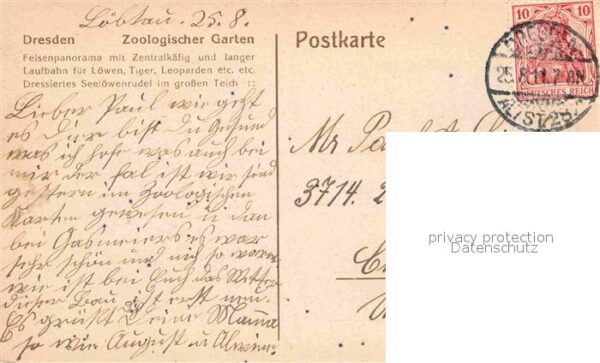 Löbtau. 25.8.
Dresden Zoologischer Garten
Felsenpanorama mit Zentralkäfig und langer
Laufbahn für Löwen, Tiger, Leoparden etc. etc.
Dressiertes Seelöwenrudel im großen Teich ::
Lieber Paul wie geht
es Dir bist du Gesund
was ich hoffe was auch bei
mir der fal ist wir sind
gestern im Zoologischen
Garten gewesen u dan
bei Gasmeiers es war
sehr schön und
wie ist bei Euch das Wetter
dieser Bau ist erst neu.
Es grüßt Deine Mamma
so wie August u Alwine.
Postkarte
10 10
DEUTSCHES REICH
DRESDEN
25.8.11.7-8N.
ALTST.
Mr
3714. 2
privacy protection
Datenschutz